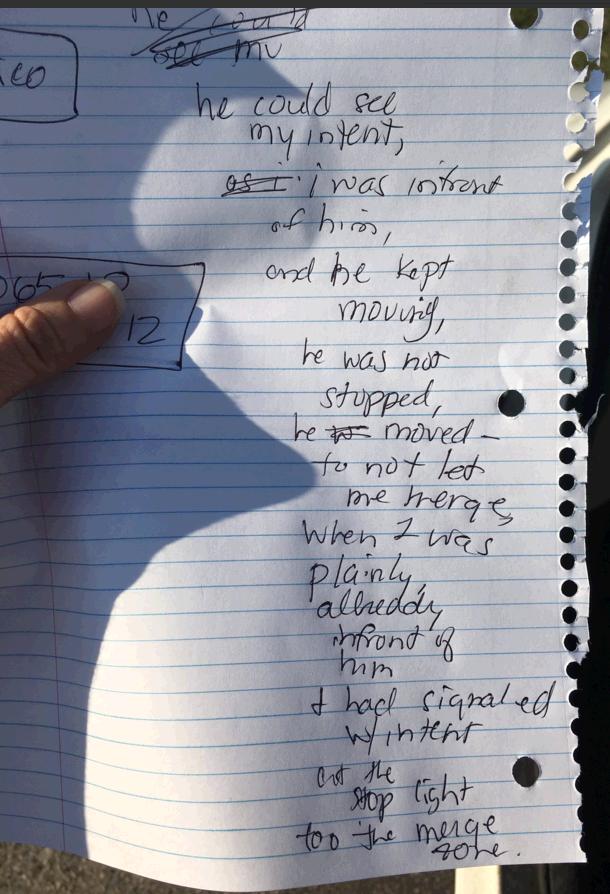 he could
see my
ico
he could see
my intent,
as i i was infront
of him,
and he kept
moving,
065
12
he was not
stopped,
he moved -
to not let
me merge,
when I was
plainly,
allreddy,
infront of
him
I had signaled
w/ intent
at the
stop light
too the merge
zone.